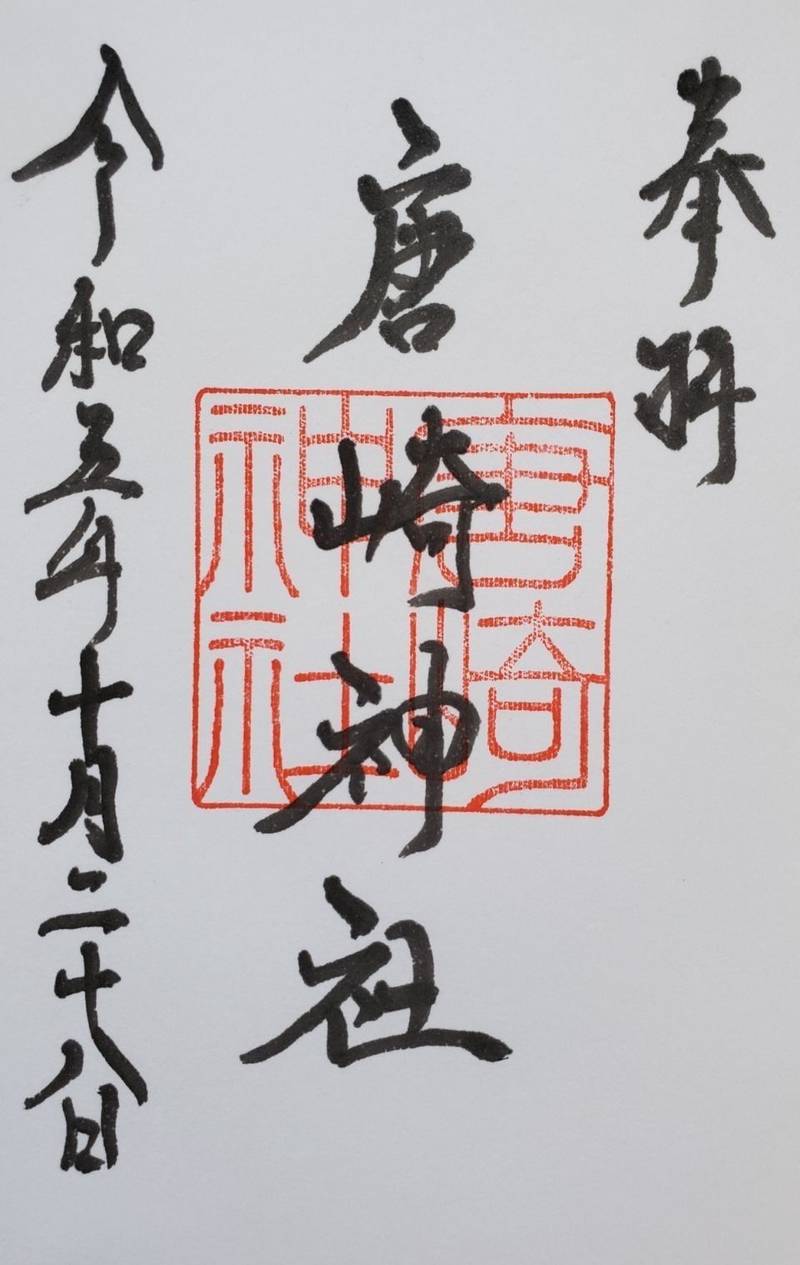 奉拝
唐崎神社
唐崎
神社
令和五年十月二十八日